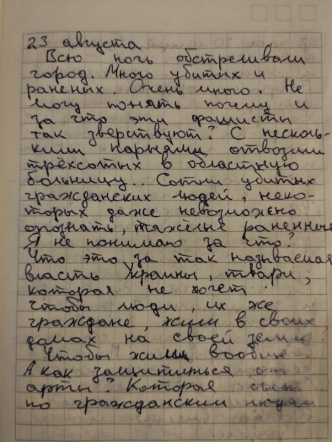 23 августа
Всю ночь обстреливали
город. Много убитых и
раненых. Очень много. Не
могу понять почему и
за что эти фашисты
так зверствуют? С несколь-
кими парнями отвозили
трёхсотых в областную
больницу.. Сотни убитых
гражданских людей, неко-
торых даже невозможено
опознать, тяжелые раненные
Я не понимаю за что?
Что это за так называемая
власть Украины, твари,
которая не хочет
чтобы люди, их же
граждане, жили в своих
домах на своей земле.
Чтобы жили вообще
А как защититься от
арты? Которая
по гражданским людям